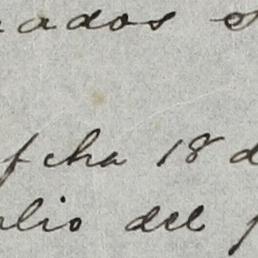 rados e
fcha 18 d
ulio del p